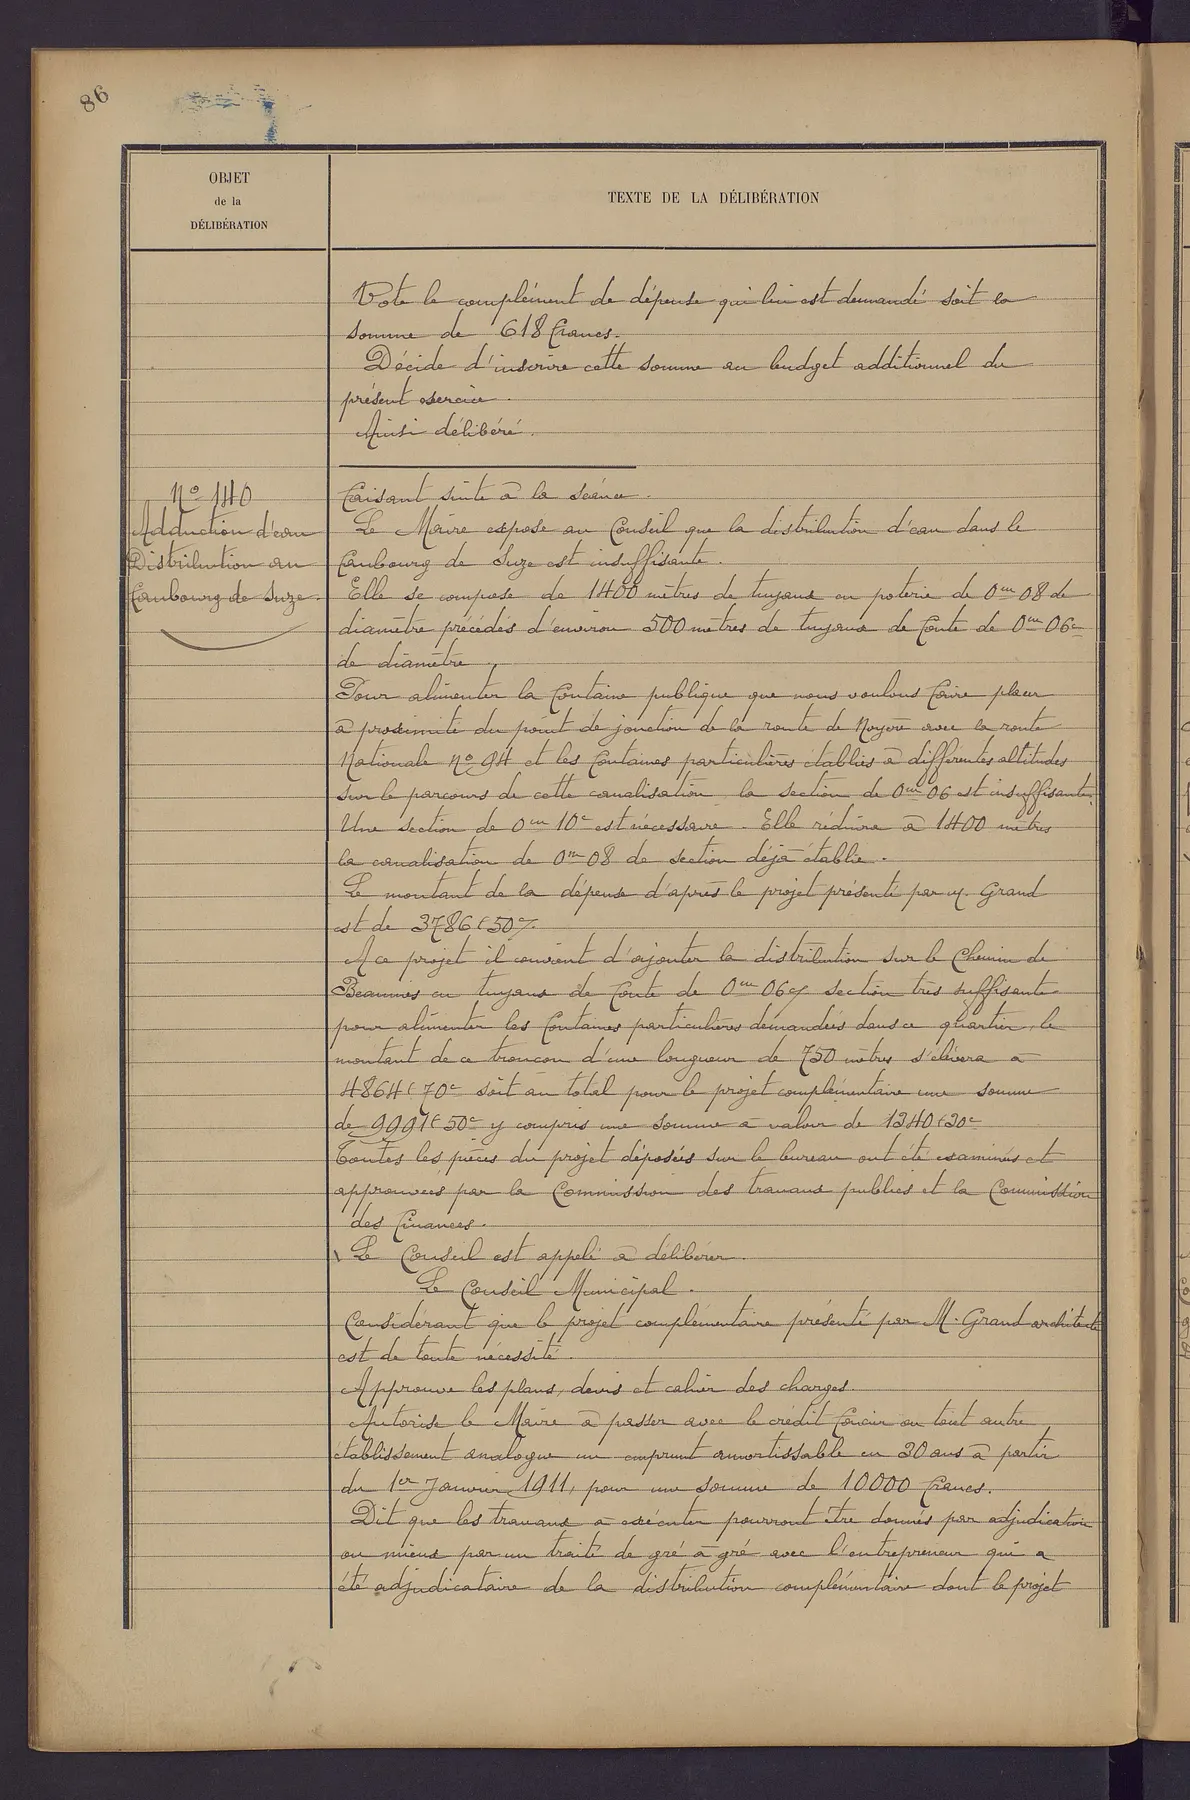 86
OBJET
de la
DÉLIBÉRATION
TEXTE DE LA DÉLIBÉRATION
Vote le complément de dépense qui lui est demandé soit la
somme de 618 francs.
Décide d'inscrire cette somme au budget additionnel du
présent exercice.
Ainsi délibéré.
No 140
Adduction d'eau
Distribution au
Faubourg de Suze.
Faisant suite à la séance.
Le Maire expose au Conseil que la distribution d'eau dans le
Faubourg de Suze est insuffisante.
Elle se compose de 1400 mètres de tuyaux en poterie de 0m 08 de
diamètre précédés d'environ 500 mètres de tuyaux de fonte de 0m 06c
de diamètre.
Pour alimenter la fontaine publique que nous voulons faire placer
à proximité du point de jonction de la route de Noyers avec la route
Nationale No 94 et les fontaines particulières établies à différentes altitudes
sur le parcours de cette canalisation la section de 0m 06 est insuffisante.
Une section de 0m 10c est nécessaire. Elle réduira à 1400 mètres
la canalisation de 0m 08 de section déjà établie.
Le montant de la dépense d'après le projet présenté par M. Grand
est de 3786f 50c.
A ce projet il convient d'ajouter la distribution sur le Chemin de
Beaumes en tuyaux de fonte de 0m 06c section très suffisante
pour alimenter les fontaines particulières demandées dans ce quartier, le
montant de ce tronçon d'une longueur de 750 mètres s'élèvera à
4864f 70c soit au total pour le projet complémentaire une somme
de 9991f 50c y compris une somme à valoir de 1340f 30c
Toutes les pièces du projet déposées sur le bureau ont été examinées et
approuvées par la Commission des travaux publics et la Commission
des Finances.
Le Conseil est appelé à délibérer.
Le Conseil Municipal.
Considérant que le projet complémentaire présenté par M. Grand architecte
est de toute nécessité.
Approuve les plans, devis et cahier des charges.
Autorise le Maire à passer avec le crédit foncier ou tout autre
établissement analogue un emprunt amortissable en 30 ans à partir
du 1er Janvier 1911, pour une somme de 10000 francs.
Dit que les travaux à exécuter pourront être donnés par adjudication
ou mieux par un traité de gré à gré avec l'entrepreneur qui a
été adjudicataire de la distribution complémentaire dont le projet